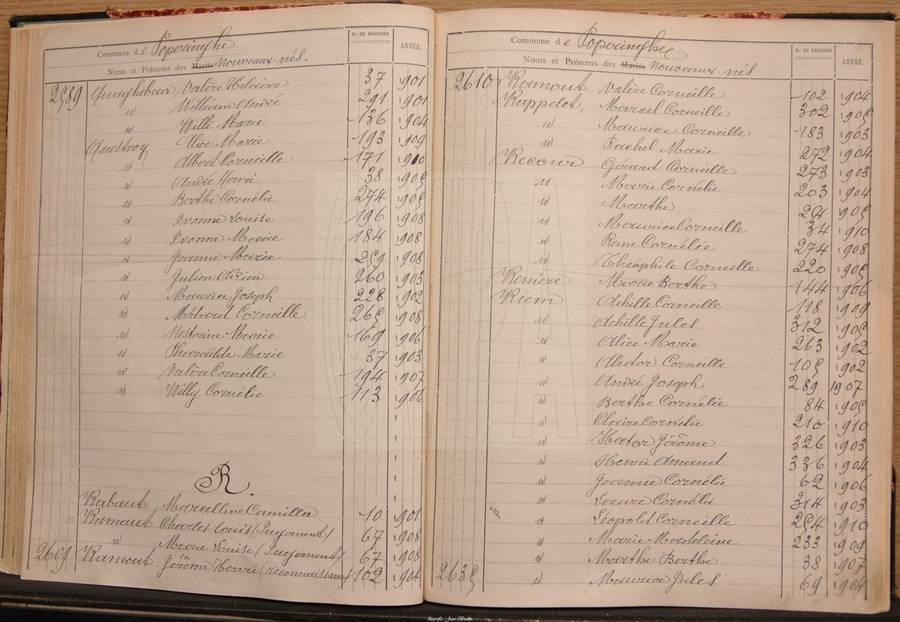 Commune de Poperinghe
Nos DE REGISTRE
ANNÉE.
Noms et Prénoms des Mariés Nouveaux-nés.
2589 Quaghebeur Valère Helevire 37 1901
id William André 291 1901
id Willi Marie 136 1904
Questroy Alice Marie 193 1909
id Albert Corneille 171 1910
id André Henri 38 1905
id Berthe Cornélie 274 1905
id Ivonne Louise 196 1908
id Ivonne Marie 184 1908
id Jeanne Marie 259 1908
id Julien 260 1903
id Maurice Joseph 228 1902
id Médard Corneille 265 1908
id Nestorine Marie 169 1906
id Marie 37 1903
id Valère Corneille 194 1907
id Willy Cornélie 113 1906
R.
Rabaut Marcelline Camilla 10 1901
Ramaut Charles Louis (Jugement) 67 1908
id Marie Louise (Jugement) 67 1908
2609 Ramout Jérôme Henri (reconnaissance) 102 1904
Commune de Poperinghe
Nos DE REGISTRE
ANNÉE.
Noms et Prénoms des Mariés Nouveaux-nés
2610 Ramout Valère Corneille 102 1904
Rappelet Marcel Corneille 302 1905
id Maurice Corneille 183 1903
id Rachel Marie 272 1904
Recour Gérard Corneille 273 1903
id Marie Cornélie 203 1904
id Marthe 254 1905
id Maurice Corneille 34 1910
id Reine Cornélie 274 1908
id Théophile Corneille 220 1905
Renière Marie Berthe 144 1906
Riem Achille Corneille 118 1909
id Achille Jules 312 1905
id Alice Marie 263 1902
id Alidor Corneille 105 1902
id André Joseph 289 1907
id Berthe Cornélie 84 1905
id Claire Cornélie 210 1910
id Hector Jérôme 326 1903
id Henri Amand 336 1904
id Jeanne Cornélie 62 1906
id Laure Cornélie 314 1903
id Léopold Corneille 254 1910
id Marie Madeleine 233 1909
id Marthe Berthe 38 1907
2635 id Maurice Jules 69 1904